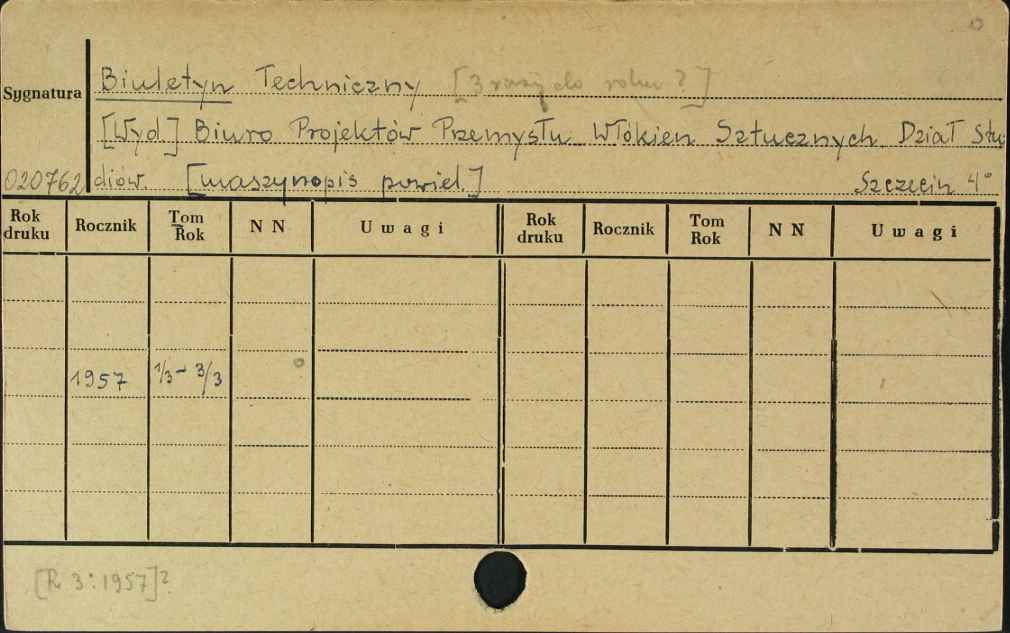 Biuletyn Techniczny [3 razy do roku?]
Sygnatura
[Wyd.] Biuro Projektów Przemysłu Włókien Sztucznych. Dział Stu-
020762 diów. [maszynopis powiel.] Szczecin 4°
Rok druku Rocznik Tom Rok N N Uwagi Rok druku Rocznik Tom Rok N N Uwagi
1957 1/3 - 3/3
[R 3:1957]?